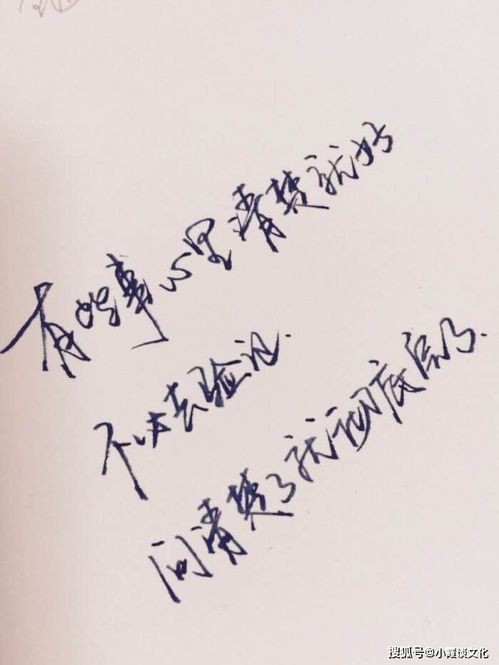 有些事心里清楚就好
不必去验证.
问清楚了就彻底了.
搜狐号@小霞谈文化